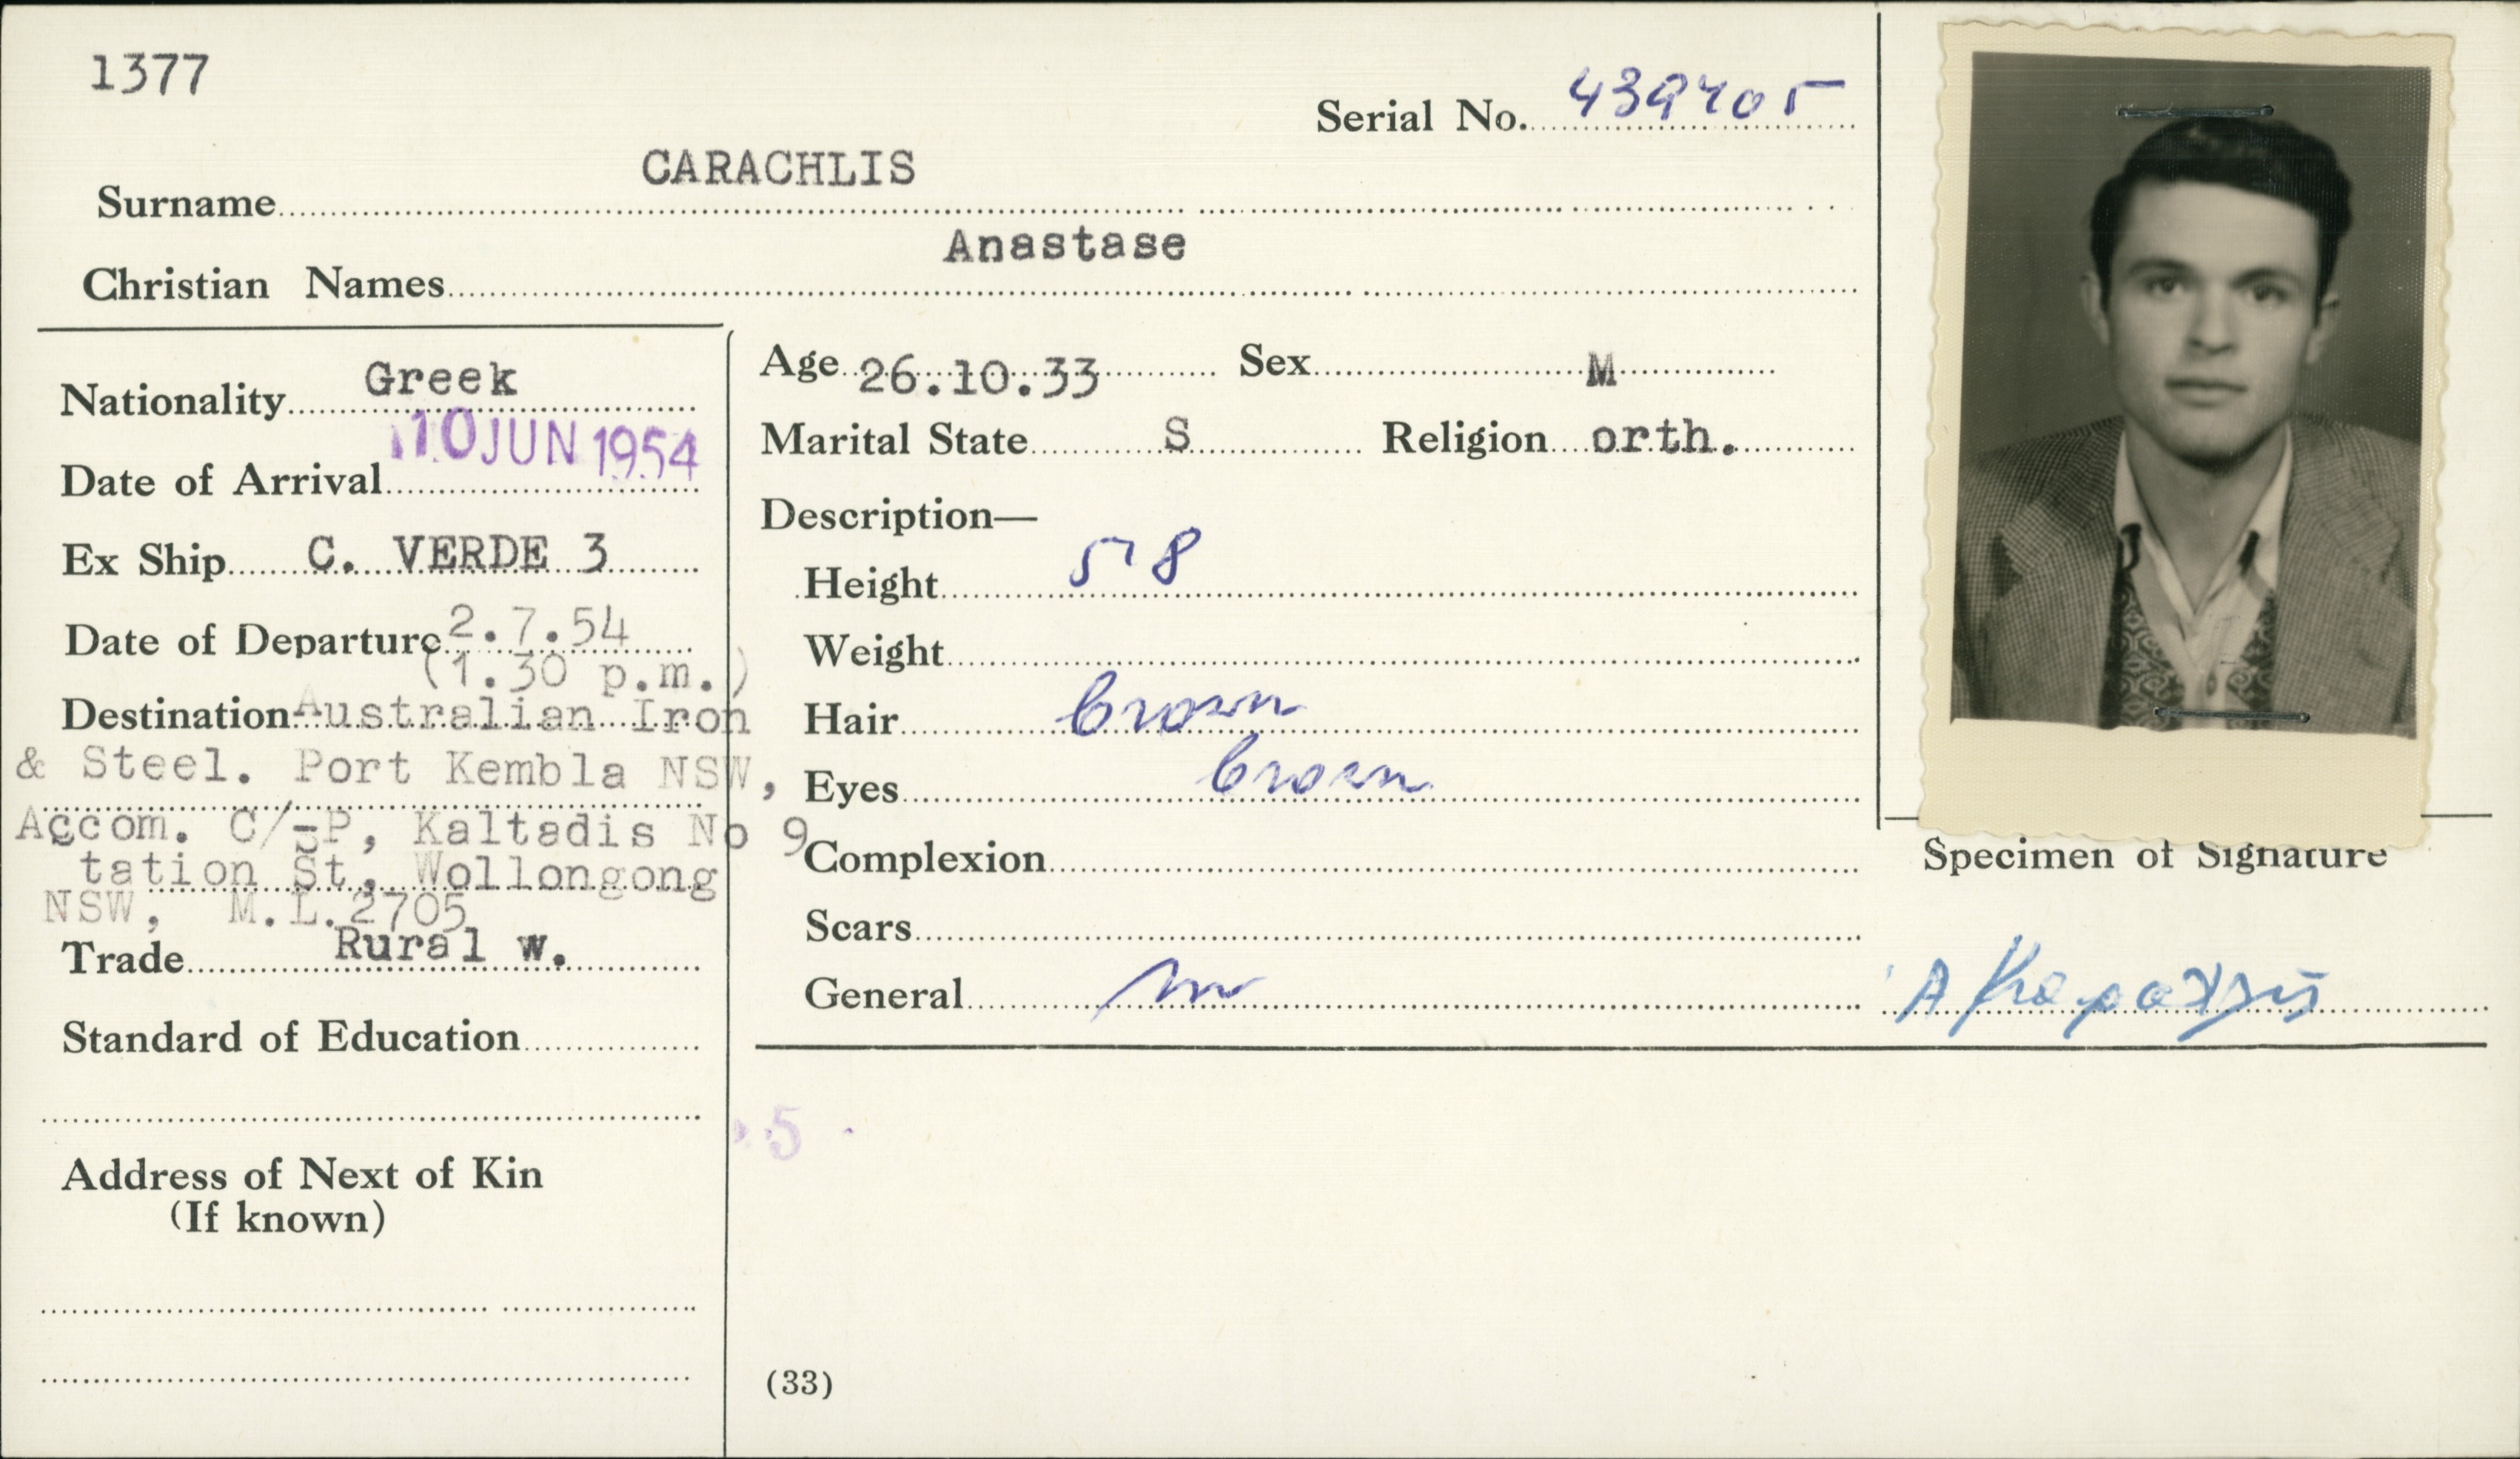 1377
Serial No. 439405
Surname CARACHLIS
Christian Names Anastase
Nationality Greek
Date of Arrival 10 JUN 1954
Ex Ship C. VERDE 3
Date of Departure 2.7.54
(1.30 p.m.)
Destination Australian Iron
& Steel. Port Kembla NSW,
Accom. C/- P, Kaltadis No 9
tation St. Wollongong
NSW, M.L.2705
Trade Rural w.
Standard of Education
Address of Next of Kin
(If known)
Age 26.10.33 Sex M
Marital State S Religion orth.
Description—
Height 5'8
Weight
Hair brown
Eyes brown
Complexion
Scars
General
5
(33)
Specimen of Signature